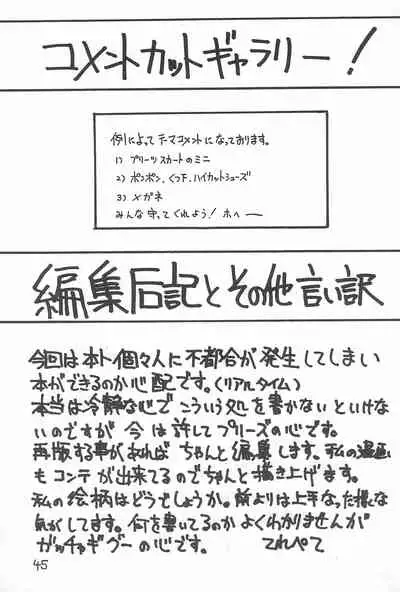 コメントカットギャラリー!
例によってテーマコメントになっております。
1) プリーツスカートのミニ
2) ポンポン、くつ下、ハイカットシューズ
3) メガネ
みんな守ってくれよう! ホヘー
編集后記とその他言い訳
今回は本ト個々人に不都合が発生してしまい
本ができるのか心配です。(リアルタイム)
本当は冷静な心でこういう処を書かないといけな
いのですが今は許してプリーズの心です。
再版する事があればちゃんと編集します。私の漫画
もコンテが出来てるのでちゃんと描き上げます。
私の絵柄はどうでしょうか。前よりは上手なった様な
気がしてます。何を書いてるのかよくわかりませんが
ガッチャギグーの心です。 てれぺて
45